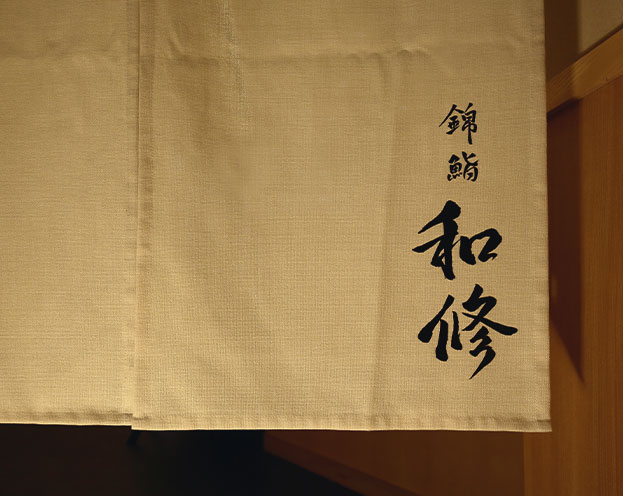 錦鮨
和修